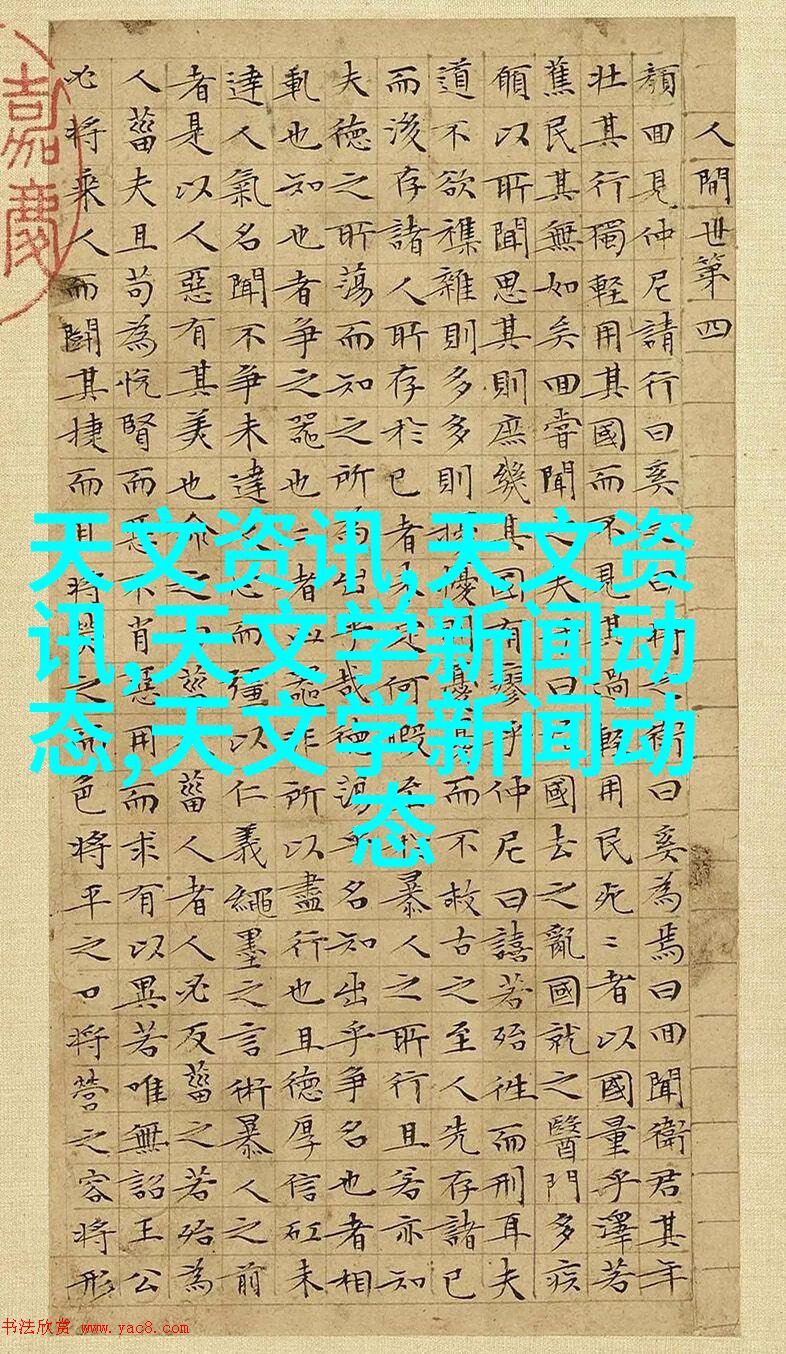 人間世第四
顏囬見仲尼請行曰奚之曰將之衛曰奚為焉曰囬聞衛君其年
壯其行獨輕用其國而不見其過輕用民死〻者以國量乎澤若
蕉民其無如矣囬嘗聞之夫曰國去之亂國就之醫門多疾
願以所聞思其則庶幾其國有瘳乎仲尼曰譆若殆往而刑耳夫
道不欲襍雜則多多則擾憂而不救古之至人先存諸已
而後存諸人所存於已者未定何暇至於暴人之所行且若亦知
夫德之所蕩而知之所為出乎哉德蕩乎名知出乎爭名也者相
軋也知也者爭之器也二者凶器非所以盡行也且德厚信矼未
達人氣名聞不爭未達人心而彊以仁義繩墨之言術暴人之前
者是以人惡有其美也命之曰菑人菑人者人必反菑之若殆為
人菑夫且苟為悅賢而惡不肖惡用而求有以異若唯無詔王公
必將乘人而鬭其捷而目將熒之而色將平之口將營之容將形
嘉慶
天文资讯,天文资
讯,天文学新闻动
态,天文学新闻动
态
书法欣赏 www.yac8.com